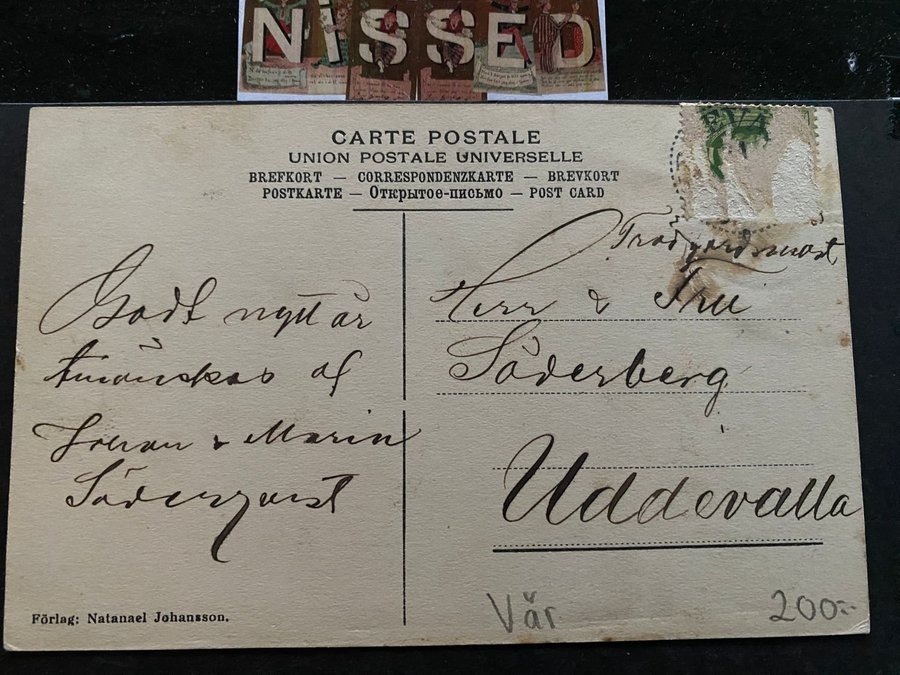 NISSED
CARTE POSTALE
UNION POSTALE UNIVERSELLE
BREFKORT — CORRESPONDENZKARTE — BREVKORT
POSTKARTE — Открытое-письмо — POST CARD
Godt nytt år
tillönskas af
Johan & Maria
Söderqvist
Trädgårdsmäst
Herr & Fru
Söderberg
Uddevalla
Förlag: Natanael Johansson.
Vår
200:-